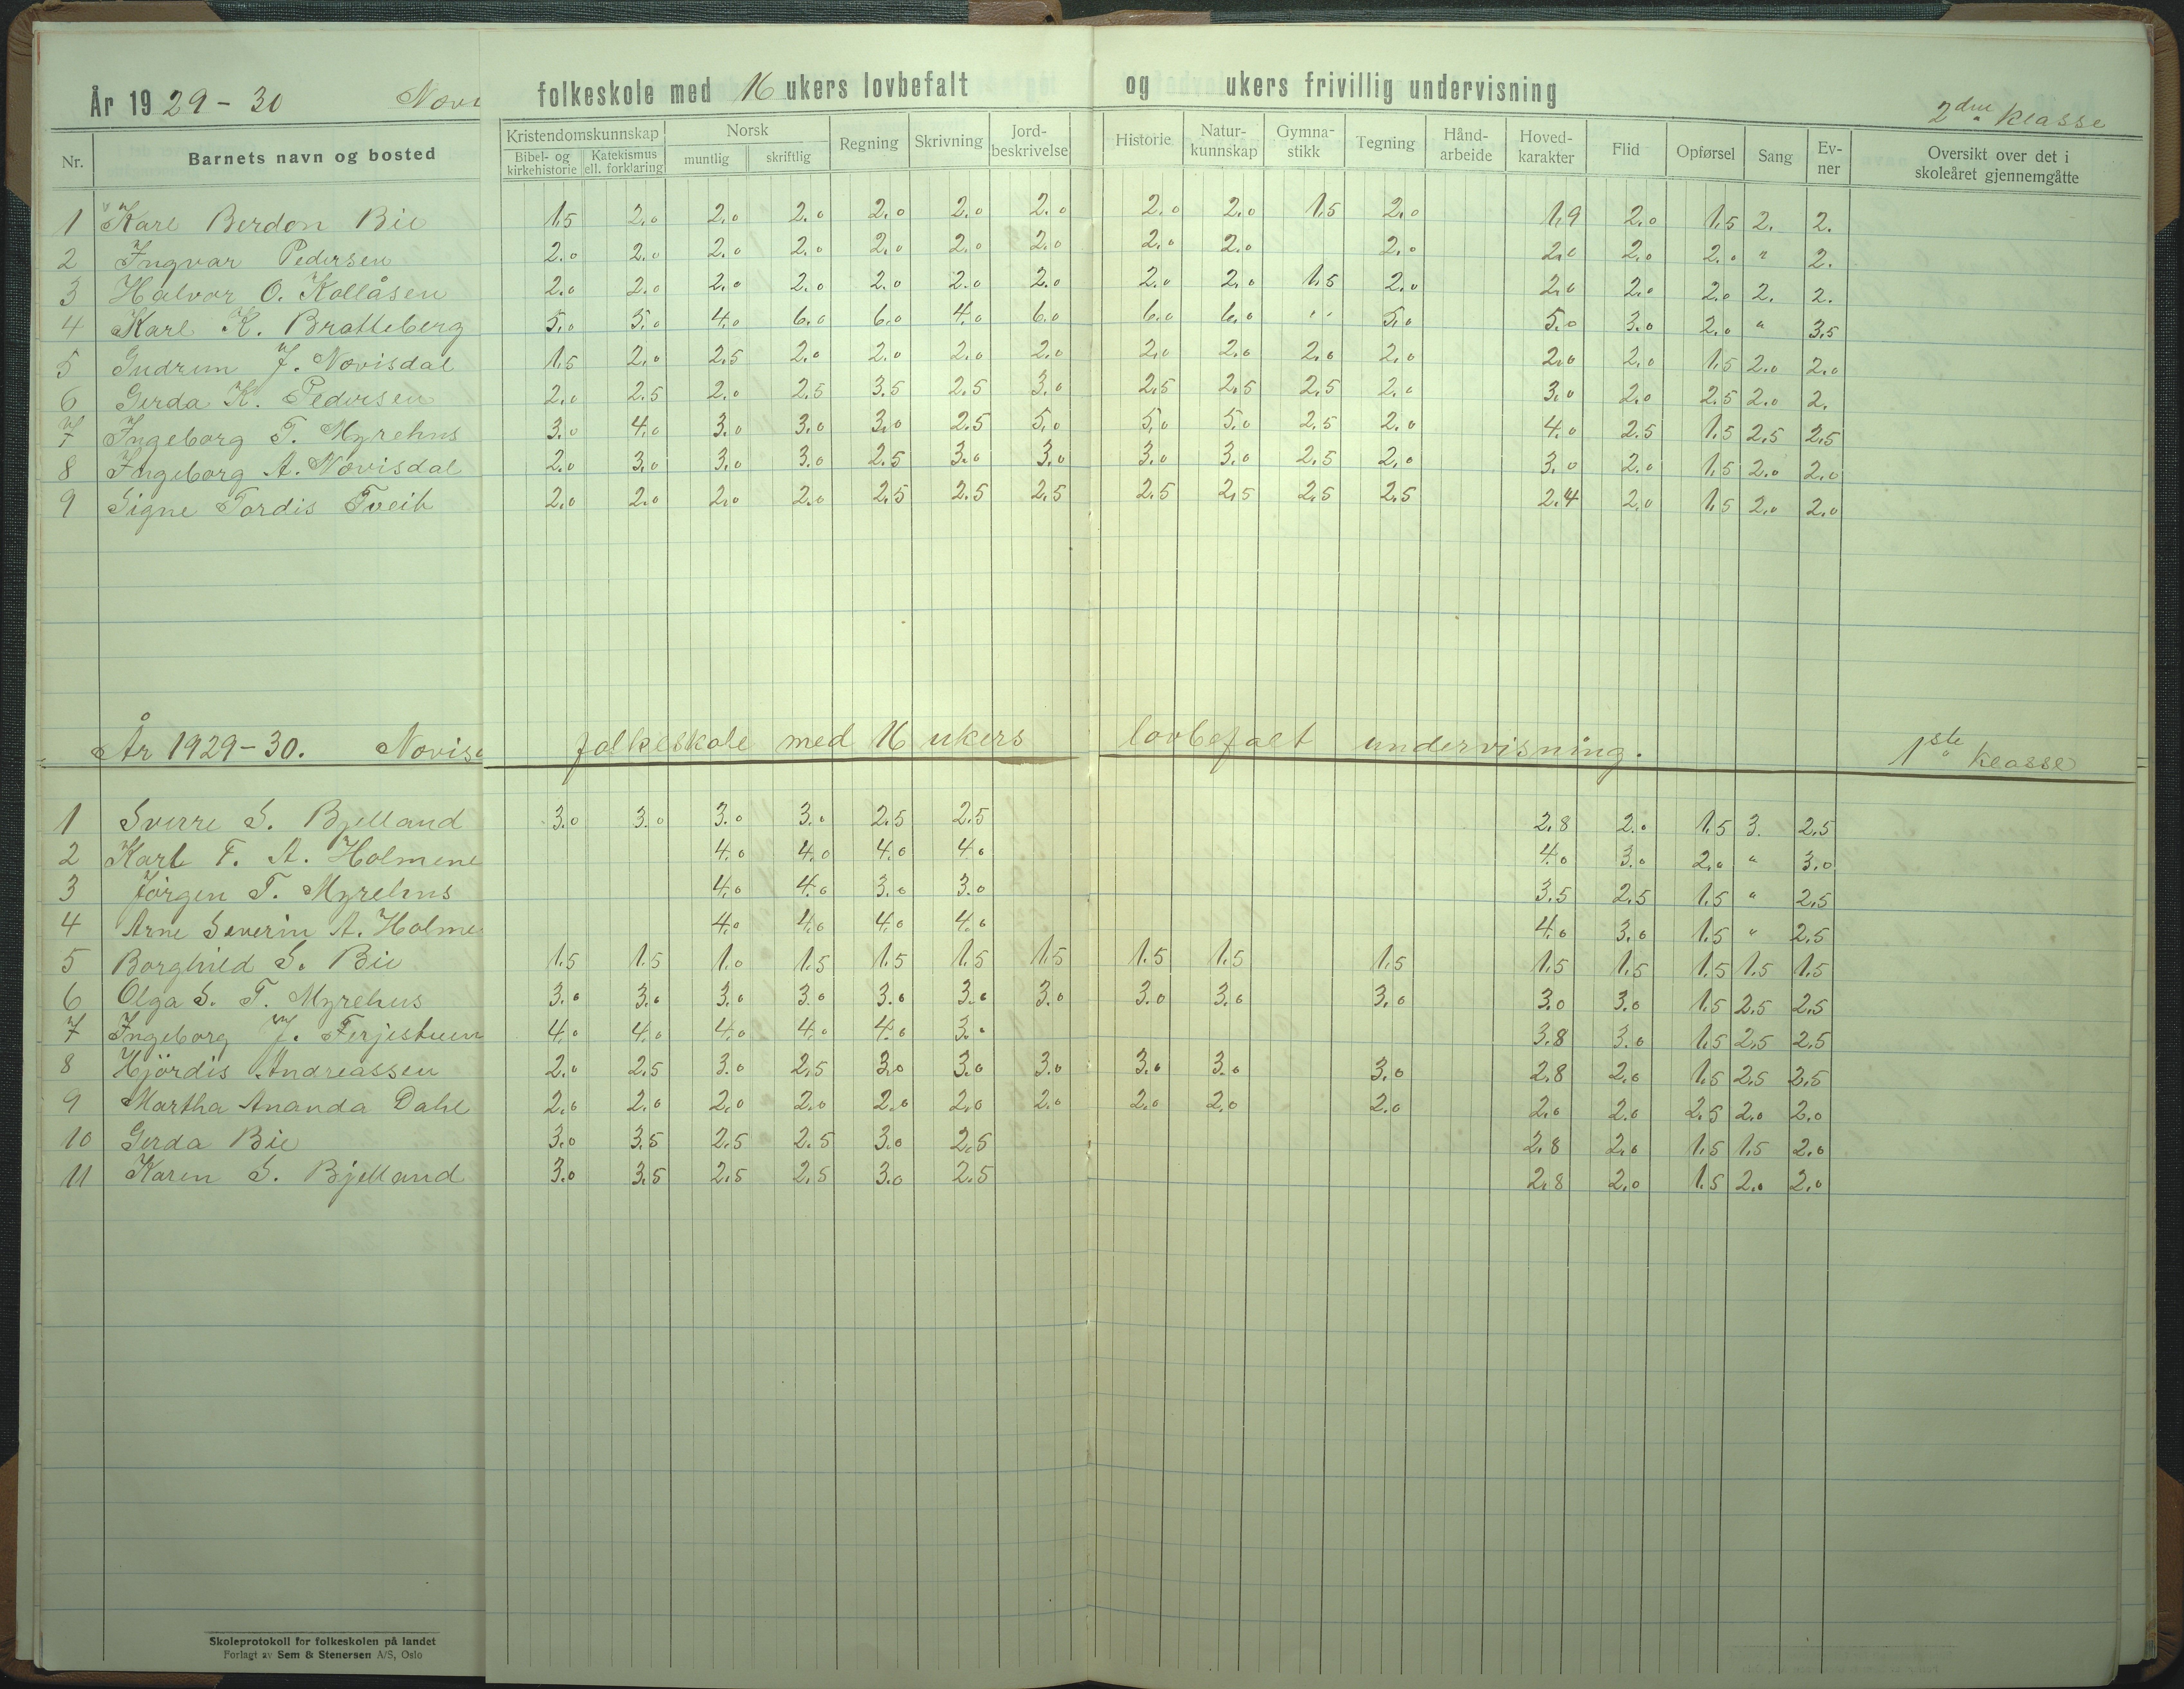 År 1929-30 Novi folkeskole med 16 ukers lovbefalt og ukers frivillig undervisning 2den klasse
Nr. Barnets navn og bosted Kristendomskunnskap Bibel- og kirkehistorie Katekismus ell. forklaring Norsk muntlig skriftlig Regning Skrivning Jord-beskrivelse Historie Natur-kunnskap Gymna-stikk Tegning Hånd-arbeide Hoved-karakter Flid Opførsel Sang Ev-ner Oversikt over det i skoleåret gjennemgåtte
1 Karl Berdon Bie 1.5 2.0 2.0 2.0 2.0 2.0 2.0 2.0 2.0 1.5 2.0 1.9 2.0 1.5 2. 2.
2 Ingvar Pedersen 2.0 2.0 2.0 2.0 2.0 2.0 2.0 2.0 2.0 2.0 2.0 2.0 2.0 " 2.
3 Halvor O. Kollåsen 2.0 2.0 2.0 2.0 2.0 2.0 2.0 2.0 2.0 1.5 2.0 2.0 2.0 2.0 2. 2.
4 Karl K. Bratteberg 5.0 5.0 4.0 6.0 6.0 4.0 6.0 6.0 6.0 " 5.0 5.0 3.0 2.0 " 3.5
5 Gudrun J. Novisdal 1.5 2.0 2.5 2.0 2.0 2.0 2.0 2.0 2.0 2.0 2.0 2.0 2.0 1.5 2.0 2.0
6 Gerda K. Pedersen 2.0 2.5 2.0 2.5 3.5 2.5 3.0 2.5 2.5 2.5 2.0 3.0 2.0 2.5 2.0 2.
7 Ingeborg T. Myrehus 3.0 4.0 3.0 3.0 3.0 2.5 5.0 5.0 5.0 2.5 2.0 4.0 2.5 1.5 2.5 2.5
8 Ingeborg A. Novisdal 2.0 3.0 3.0 3.0 2.5 3.0 3.0 3.0 3.0 2.5 2.0 3.0 2.0 1.5 2.0 2.0
9 Signe Tordis Tveit 2.0 2.0 2.0 2.0 2.5 2.5 2.5 2.5 2.5 2.5 2.5 2.4 2.0 1.5 2.0 2.0
År 1929-30. Novis folkeskole med 16 ukers lovbefalt undervisning. 1ste klasse
1 Sverre S. Bjelland 3.0 3.0 3.0 3.0 2.5 2.5 2.8 2.0 1.5 3. 2.5
2 Karl T. A. Holmene 4.0 4.0 4.0 4.0 4.0 3.0 2.0 " 3.0
3 Jörgen T. Myrehus 4.0 4.0 3.0 3.0 3.5 2.5 1.5 " 2.5
4 Arne Severin A. Holme 4.0 4.0 4.0 4.0 4.0 3.0 1.5 " 2.5
5 Borghild S. Bie 1.5 1.5 1.0 1.5 1.5 1.5 1.5 1.5 1.5 1.5 1.5 1.5 1.5 1.5 1.5
6 Olga S. T. Myrehus 3.0 3.0 3.0 3.0 3.0 3.0 3.0 3.0 3.0 3.0 3.0 3.0 1.5 2.5 2.5
7 Ingeborg J. Ferjestuen 4.0 4.0 4.0 4.0 4.0 3.0 3.8 3.0 1.5 2.5 2.5
8 Hjördis Andreassen 2.0 2.5 3.0 2.5 3.0 3.0 3.0 3.0 3.0 3.0 2.8 2.0 1.5 2.5 2.5
9 Martha Ananda Dahl 2.0 2.0 2.0 2.0 2.0 2.0 2.0 2.0 2.0 2.0 2.0 2.0 2.5 2.0 2.0
10 Gerda Bie 3.0 3.5 2.5 2.5 3.0 2.5 2.8 2.0 1.5 1.5 2.0
11 Karen S. Bjelland 3.0 3.5 2.5 2.5 3.0 2.5 2.8 2.0 1.5 2.0 2.0
Skoleprotokoll for folkeskolen på landet
Forlagt av Sem & Stenersen A/S, Oslo